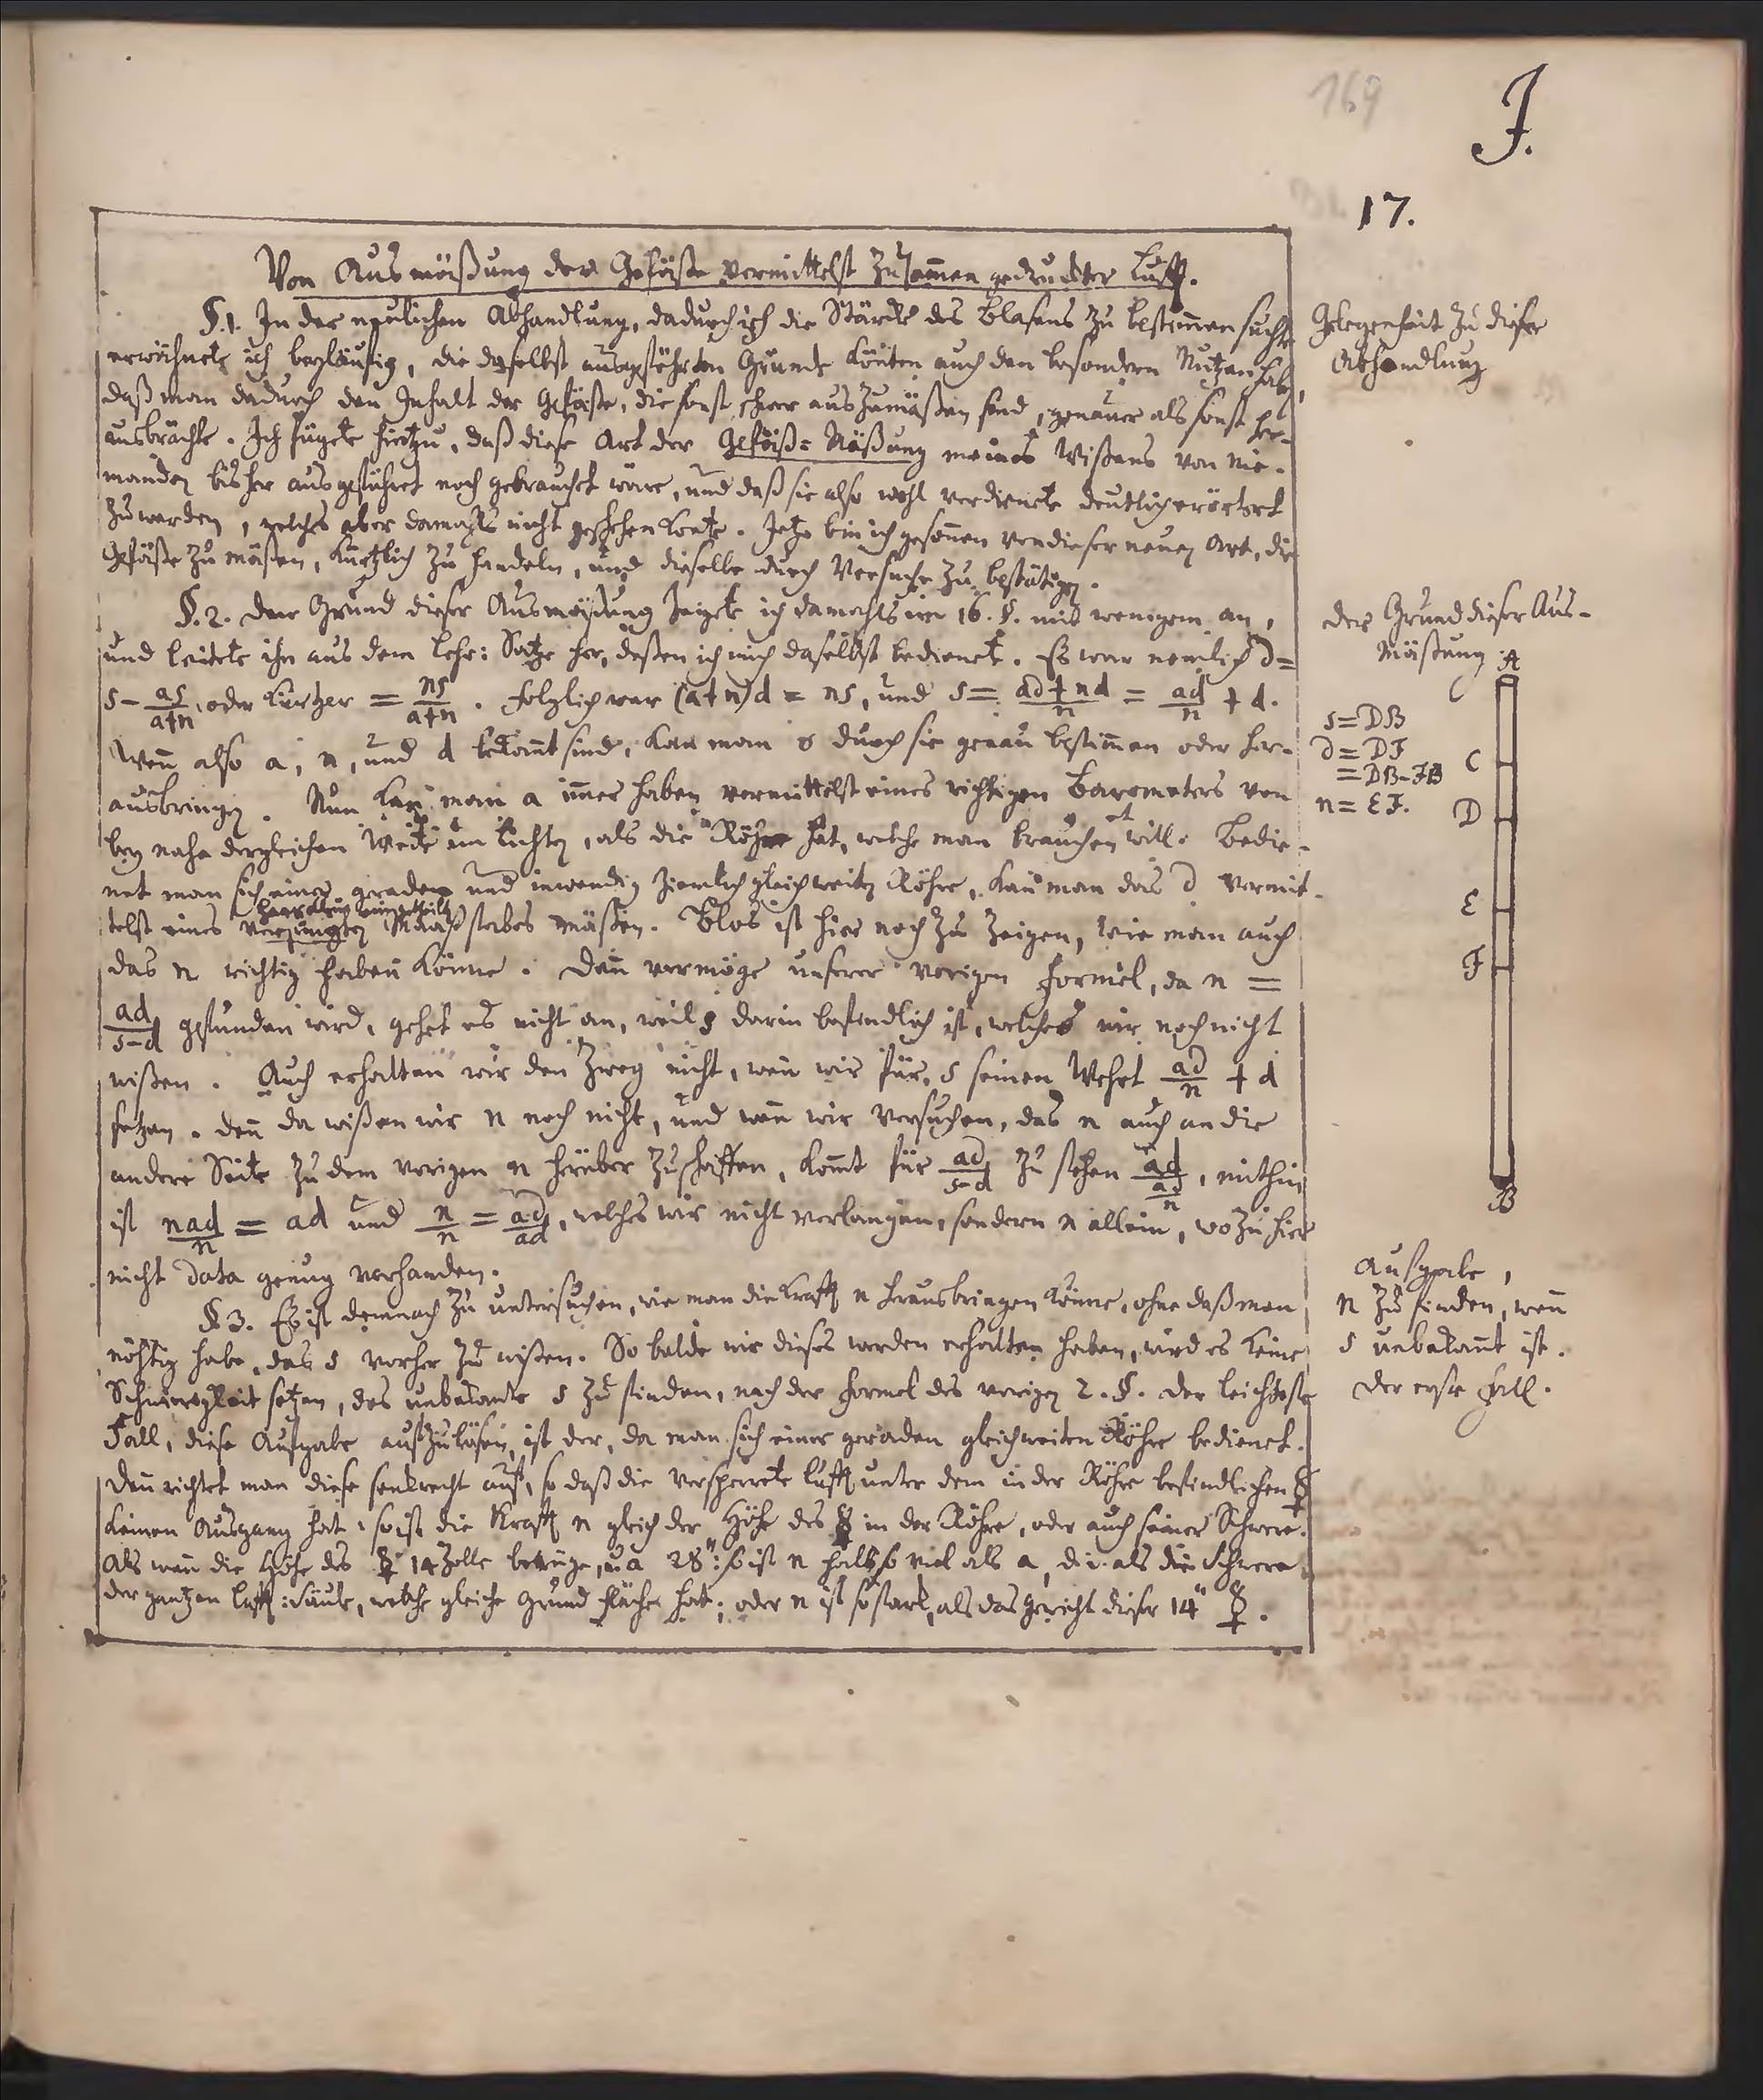 169
J.
17.
Von Ausmäßung der Gefäße vermittelst zusammen gedruckter Lufft.
§.1. In der neulichen Abhandlung, dadurch ich die Stärcke des Blasens zu bestimmen suchte
erwähnete ich beyläufig, die daselbst ausgeführten Gründe könten auch den besondern Nutzen haben,
daß man dadurch den Inhalt der Gefäße, die sonst schwer auszumäßen sind, genauer als sonst her-
ausbrächte. Ich fügete hinzu, daß diese Art der Gefäß=Mäßung meines Wißens von Nie-
manden bisher ausgeführet noch gebrauchet wäre, und daß sie also wohl verdienete deutlich erörtert
zu werden, welches aber damahls nicht geschehen konte. Jetzo bin ich gesonnen von dieser neuen Art, die
Gefäße zu mäßen, kürtzlich zu handeln, und dieselbe durch Versuche zu bestätigen.
§.2. Der Grund dieser Ausmäßung zeigete ich damahls im 16. §. mit wenigem an,
und leitete ihn aus dem Lehr: Satze her, deßen ich mich daselbst bedienet. Es war nemlich d=
s - as/a+n, oder kürtzer = ns/a+n. Folglich war (a+n)d = ns, und s = ad+nd/n = ad/n + d.
Wen̄ also a, n, und d bekan̄t sind, kan man s durch sie genau bestim̄en oder her-
ausbringen. Nun kan man a im̄er haben vermittelst eines richtigen Barometers von
bey nahe dergleichen Weite im lichten, als die Röhre hat, welche man brauchen will. Bedie-
net man sich einer geraden und inwendig ziemlich gleich weiten Röhre, kan man das d vermit-
haarklein eingetheilt
telst eines verjüngten Maaßstabes mäßen. Blos ist hier noch zu zeigen, wie man auch
das n richtig haben könne. Den̄ vermöge unserer vorigen Formel, da n =
ad/s-d gefunden wird, gehet es nicht an, weil s darin befindlich ist, welches wir noch nicht
wißen. Auch erhalten wir den Zweg nicht, wen̄ wir für s seinen Wehrt ad/n + d
setzen. Den̄ da wißen wir n noch nicht, und wen̄ wir versuchen, das n auch an die
andere Seite zu dem vorigen n herüber zu schaffen, kom̄t für ad/s-d zu stehen ad/ad/n, mithin
ist nad/n = ad und n/n = ad/ad, welches wir nicht verlangen, sondern n allein, wozu hier
nicht data genug vorhanden.
§.3. Es ist demnach zu untersuchen, wie man die Krafft n herausbringen könne, ohne daß man
nöhtig habe, das s vorher zu wißen. So balde wir dieses werden erhalten haben, wird es keine
Schwierigkeit setzen, das unbekante s zu finden, nach der Formel des vorigen 2. §. Der leichteste
Fall, diese Aufgabe aufzulösen, ist der, da man sich einer geraden gleichweiten Röhre bedienet.
Den̄ richtet man diese senkrecht auf, so daß die versperrete Lufft unter dem in der Röhre befindlichen ☿
keinen Ausgang hat, so ist die Krafft n gleich der Höhe des ☿ in der Röhre, oder auch seiner Schwere.
Als wen̄ die Höhe des ☿ 14 Zolle betrüge, u. a 28": so ist n halb so viel als a, d. i. als die Schwere
der gantzen Lufft: Säule, welche gleiche Grund Fläche hat; oder n ist so stark, als das Gewicht dieser 14" ☿.
Gelegenheit zu dieser
Abhandlung
Der Grund dieser Aus-
Mäßung
A
s = DB
d = DF
= DB-FB
n = EF.
C
D
E
F
B
Aufgabe,
n zu finden, wen̄
s unbekan̄t ist.
Der erste Fall.